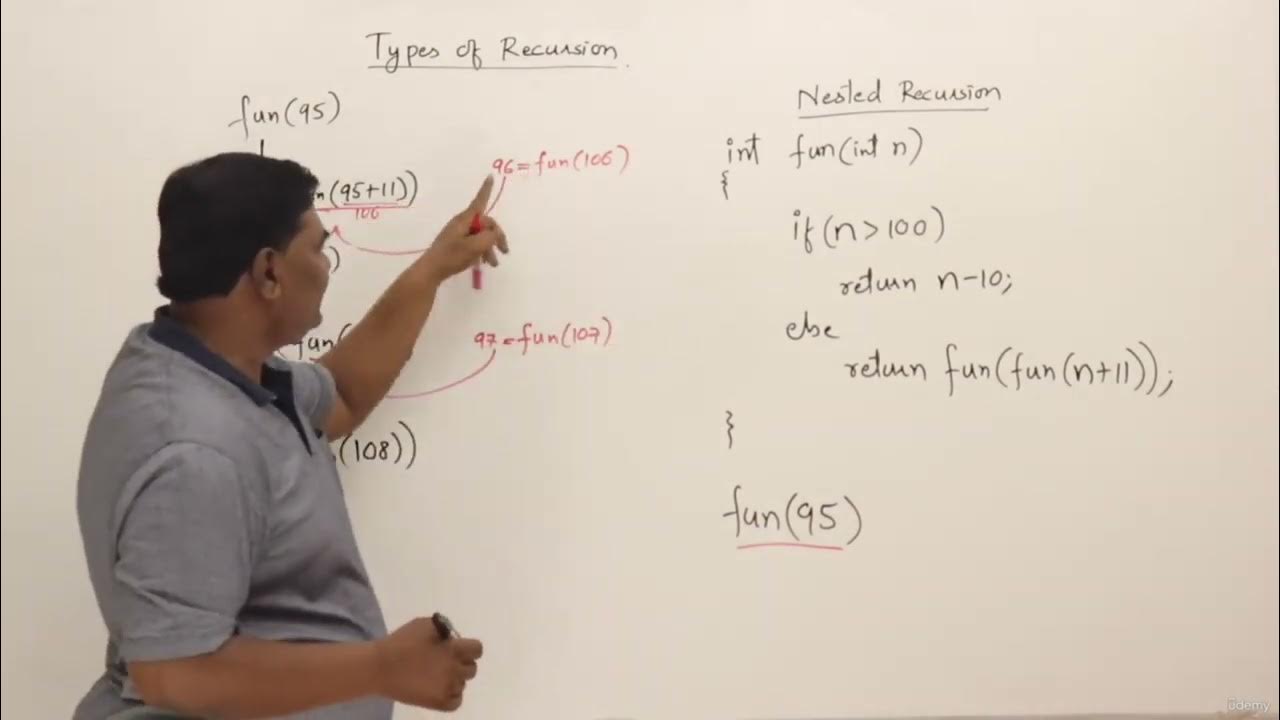 Types of Recursion.
fun(95)
(95+11))
106
96=fun(106)
)
fun(
97=fun(107)
(108))
Nested Recursion
int fun(int n)
{
if(n>100)
return n-10;
else
return fun(fun(n+11));
}
fun(95)
ûdemy